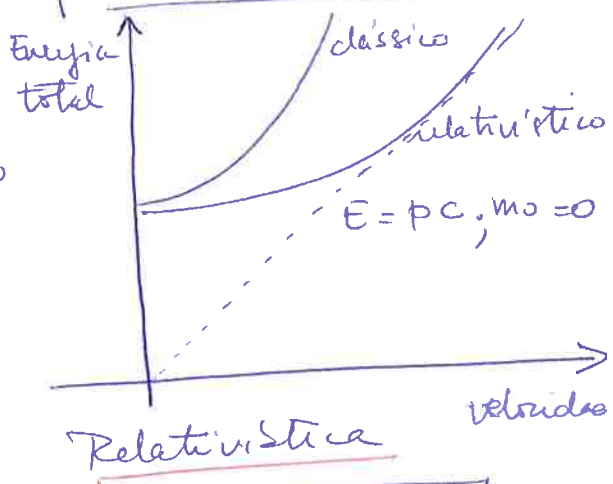 Energia
total
clássico
relativístico
E = pc; m0 = 0
velocidade
Relativística